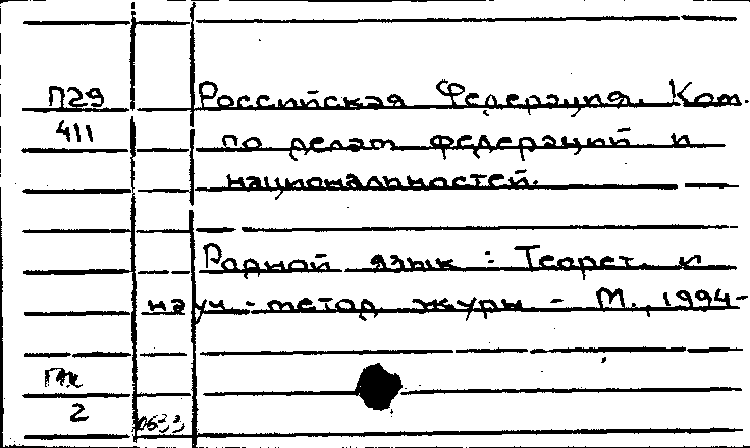 П29 Российская Федерация. Ком.
411 по делам федераций и
национальностей.
Родной язык : Теорет. и
науч.-метод. журн. - М., 1994-
2
0633